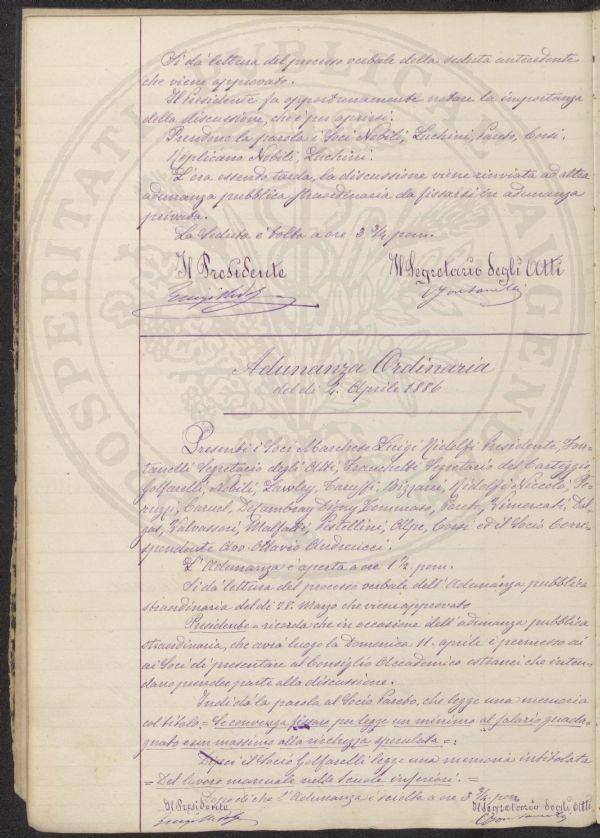 Si dà lettura del processo verbale della seduta antecedente
che viene approvato.
Il Presidente fa opportunamente notare la importanza
della discussione, che è per aprirsi.
Prendono la parola i Soci Nobili, Luchini, Pareto, Corsi.
Replicano Nobili, Luchini.
L'ora essendo tarda, la discussione viene rinviata ad altra
adunanza pubblica straordinaria da fissarsi in adunanza
privata.
La Seduta è tolta a ore 3 3/4 pom.
Il Presidente Il Segretario degli Atti
Luigi Ridolfi Fontanelli
Adunanza Ordinaria
del dì 2. Aprile 1886
Presenti i Soci Marchese Luigi Ridolfi Presidente, Fon-
tanelli Segretario degli Atti, Franchetti Segretario del Carteggio,
Golfarelli, Nobili, Lawley, Caruffi, Bizzarri, Ridolfi Niccolò, Pe-
ruzzi, Caruel, Digny Tommaso, Pareto, Vimercati, Dal-
gas, Valvassori, Malfatti, Pistellini, Alpe, Corsi ed il Socio Corri-
spondente Cav. Ottavio Andreucci.
L'Adunanza è aperta a ore 1 1/2 pom.
Si dà lettura del processo verbale dell'Adunanza pubblica
straordinaria del dì 28. Marzo che viene approvato
Presidente = ricorda che in occasione dell'adunanza pubblica
straordinaria, che avrà luogo la Domenica 11. aprile è permesso ai
ai Soci di presentare al Consiglio Accademico estranei che inten-
dano prender parte alla discussione.
Indi dà la parola al Socio Pareto, che legge una memoria
col titolo = Se convenga fissare per legge un minimo al salario guada-
gnato e un massimo alla ricchezza speculata =:
Dopo il Socio Golfarelli legge una memoria intitolata
= Del lavoro manuale nelle Scuole inferiori. =
Dopo di che l'Adunanza è sciolta a ore 3 3/4 pom
Il Presidente Il Segretario degli Atti
Luigi Ridolfi Fontanelli
PUBLICAE
PROSPERITATI
AUGENDAE